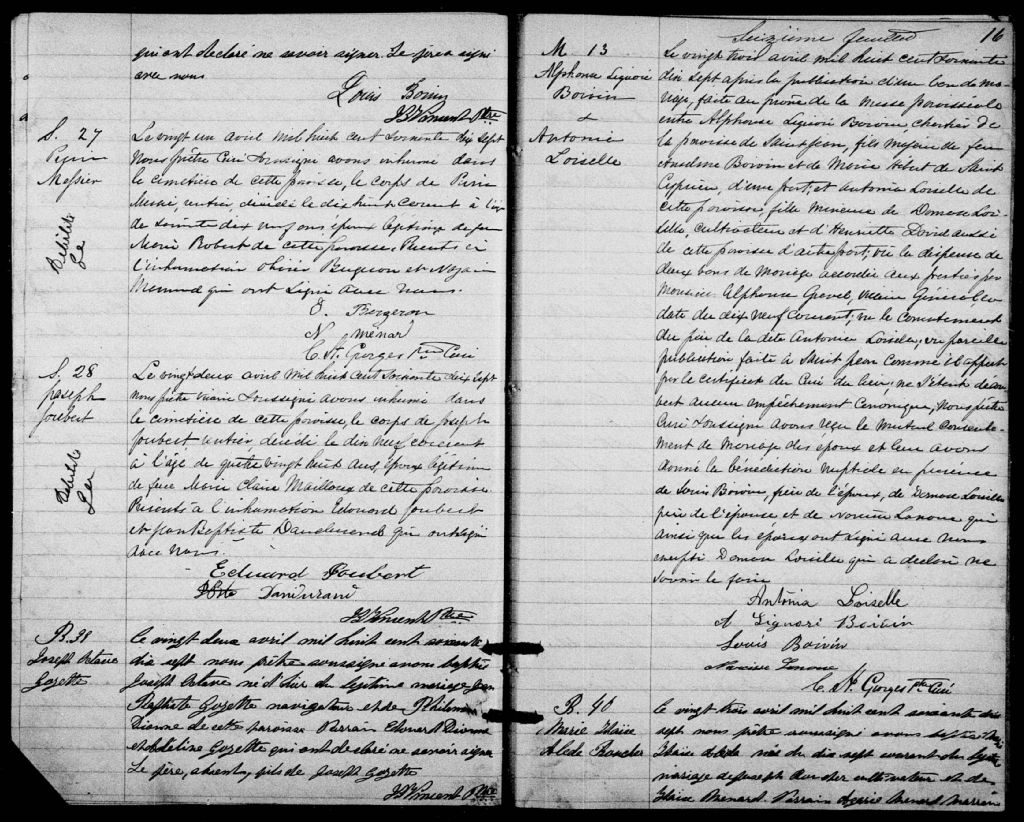 qui ont declaré ne savoir signer. Le père a signé
avec nous
Louis Boivin
JBVincent Ptre
S. 27
Messier
Rebiblité
Le vingt un avril mil huit cent soixante dix sept
Nous prêtre Curé soussigné avons inhumé dans
le cimetière de cette paroisse, le corps de
rentier, décédé le dix huit courant à l'age
de soixante dix neuf ans époux légitime de feu
Marie Robert de cette paroisse. Présents à
l'inhumation et
Menard qui ont signé avec nous.
O. Bergeron
N Ménar
C. St. Georges Ptre Curé
S. 28
Joseph
Joubert
Le vingt deux avril mil huit cent soixante dix sept
nous prêtre vicaire soussigné avons inhumé dans
le cimetière de cette paroisse, le corps de Joseph
Joubert rentier décédé le dix neuf courant
à l'âge de quatre vingt huit ans, époux légitime
de feue Marie Claire Mailloux de cette paroisse.
Présents à l'inhumation Edouard Joubert
et Jean Baptiste Dandurand qui ont signé
avec nous.
Eduard Joubert
JBte Dandurand
JBVincent Ptre
B. 38
Joseph Octave
Gozette
Le vingt deux avril mil huit cent soixante
dix sept nous prêtre soussigné avons baptisé
Joseph Octave né d'hier du légitime mariage Jean
Baptiste Gozette navigateur et de Philomène
Dionne de cette paroisse Parrain Edouard Dionne
et Adeline Gozette qui ont declaré ne savoir signer
Le père, absent, fils de Joseph Gozette
JBVincent Ptre
Seizième feuillet
16
M 13
Alphonse Liguori
Boivin
&
Antonie
Loiselle
Le vingt trois avril mil huit cent soixante
dix sept après la publication d'un ban de ma-
riage, faite au prône de la messe paroissiale
entre Alphonse Liguori Boivin, de
la paroisse de Saint Jean, fils majeur de feu
Anselme Boivin et de Marie Hébert de Saint
Cyprien, d'une part, et Antonie Loiselle de
cette paroisse, fille mineure de Damase Loi-
selle, cultivateur et d'Henriette David aussi
de cette paroisse d'autre part; vu la dispense de
deux bans de mariage accordée aux parties par
Monsieur Alphonse Gravel, Vicaire Général en
date du dix neuf courant; vu le consentement
du père de la dite Antonie Loiselle; vu pareille
publication faite à Saint Jean comme il appert
par le certificat du Curé du lieu; ne s'étant décou-
vert aucun empêchement canonique, Nous prêtre
Curé soussigné avons reçu le mutuel consente-
ment de mariage des époux et leur avons
donné la bénédiction nuptiale en présence
de Louis Boivin, frère de l'époux, de Damase Loiselle
père de l'épouse et de Narcisse Lanoue qui
ainsi que les époux ont signé avec nous
excepté Damase Loiselle qui a déclaré ne
savoir le faire
Antônia Loiselle
A Liguori Boivin
Louis Boivin
Narcisse Lanoue
C. St. Gorges Ptre Curé
B. 40
Marie
Alida
Le vingt trois avril mil huit cent soixante dix
sept nous prêtre soussigné avons baptisé
née du dix sept courant du légitime
mariage de Joseph cultivateur et de
Menard. Parrain Menard Marraine